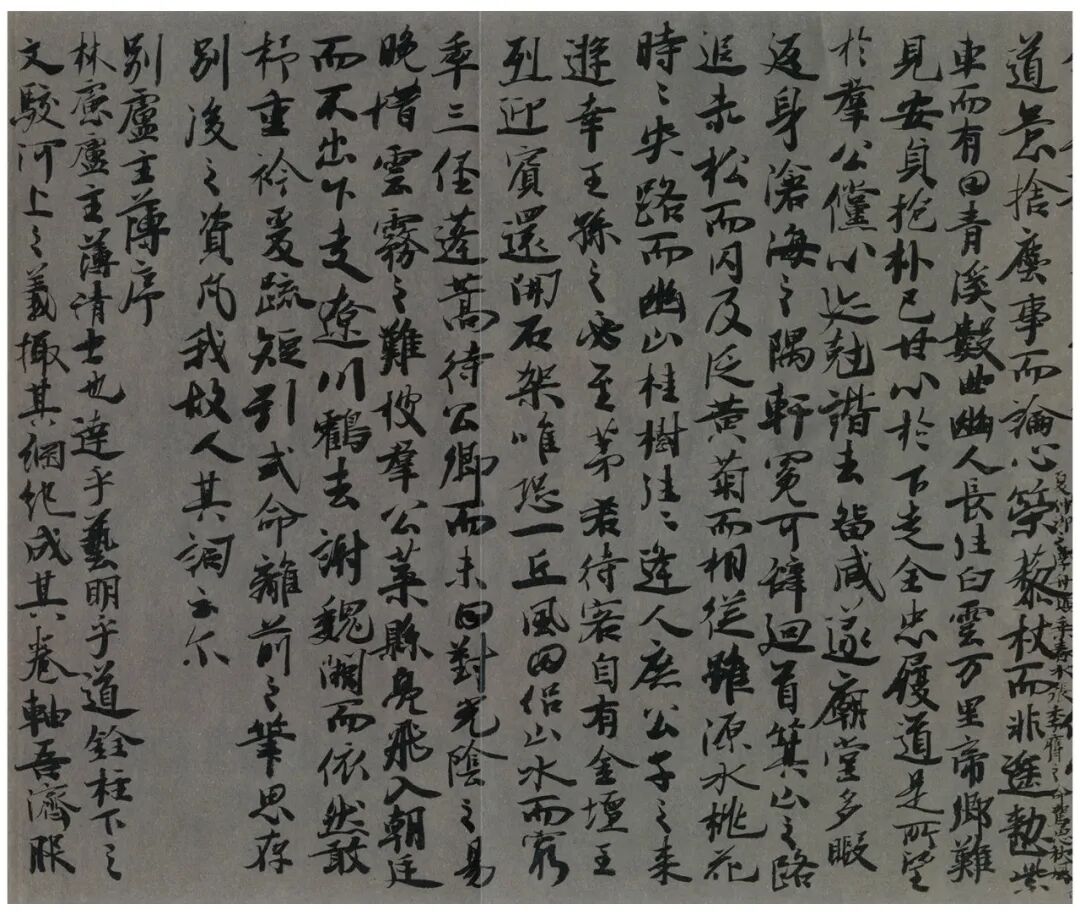 道 捨塵事而論心策藜杖而非遙勒柴
車而有日青溪數曲幽人長往白雲万里帝鄉難
見安貞抱朴已甘心於下走全忠履道是所望
於群公儻心迹尅諧去留咸遂廟堂多暇
返身滄海之隅軒冕可辞迴首箕山之路
追赤松而同及泛黄菊而相從雖源水桃花
時々失路而幽山桂樹往々逢人庶公子之来
遊幸王孫之必至茅君待客自有金壇王
列迎賓還開石架唯恐一丘風月侣山水而窮
年三径蓬蒿待公卿而未日對光陰之易
晚惜雲霧之難披群公葉縣鳧飛入朝廷
而不出下走遼川鶴去謝魏闕而依然敢
抒重衿爰疏短引式命離前之筆思存
别後之資凡我故人其詞云尔
别盧主薄序
林慮盧主薄清士也達乎藝明乎道銓柱下之
文駮河上之義撮其綱紀成其卷軸吾濟服